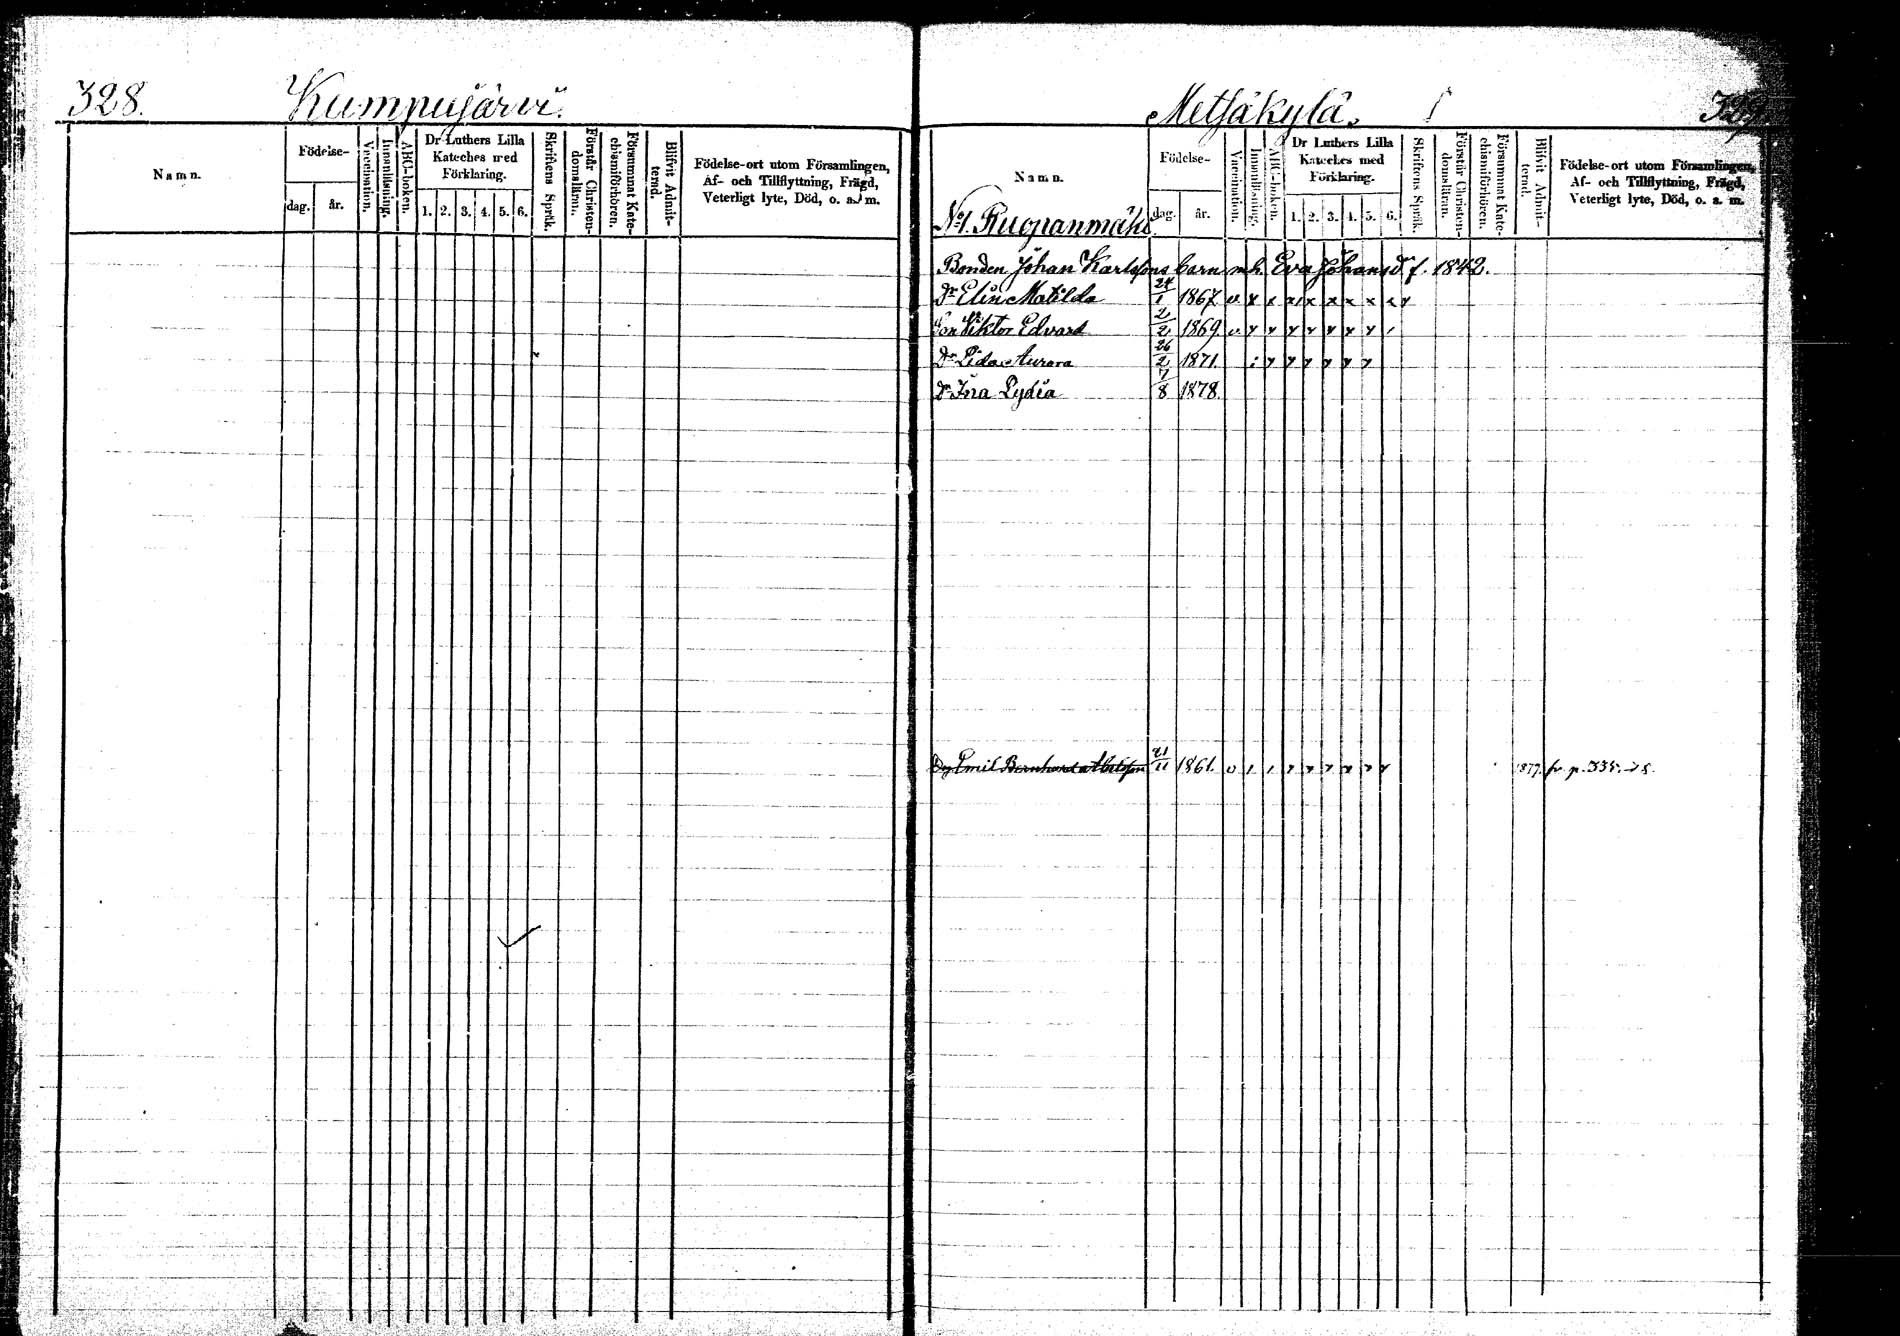 328. Kumpujärvi.
Namn.
Födelse-
dag. år.
Vaccination.
Innanläsning.
ABC-boken.
Dr Luthers Lilla Kateches med Förklaring.
1. 2. 3. 4. 5. 6.
Skriftens Språk.
Förstår Christendomsläran.
Försummat Katechismiförhören.
Blifvit Admitterad.
Födelse-ort utom Församlingen,
Af- och Tillflyttning, Frägd,
Veterligt lyte, Död, o. a. m.
Metsäkylä. 329.
Namn.
Födelse-
dag. år.
Vaccination.
Innanläsning.
ABC-boken.
Dr Luthers Lilla Kateches med Förklaring.
1. 2. 3. 4. 5. 6.
Skriftens Språk.
Förstår Christendomsläran.
Försummat Katechismiförhören.
Blifvit Admitterad.
Födelse-ort utom Församlingen,
Af- och Tillflyttning, Frägd,
Veterligt lyte, Död, o. a. m.
No 1.
Bonden Johan Karlssons barn m.h. Eva Johansdr f. 1842.
Dr Elin Matilda 24/1 1867. v x x x x x x x x x
Son Viktor Edvard 2/2 1869. v
Dr Lida Aurora 26/2 1871.
Dr Ina Lydia 7/8 1878.
Emil Bernhard 21/11 1861. v 1877. fr. p. 335.